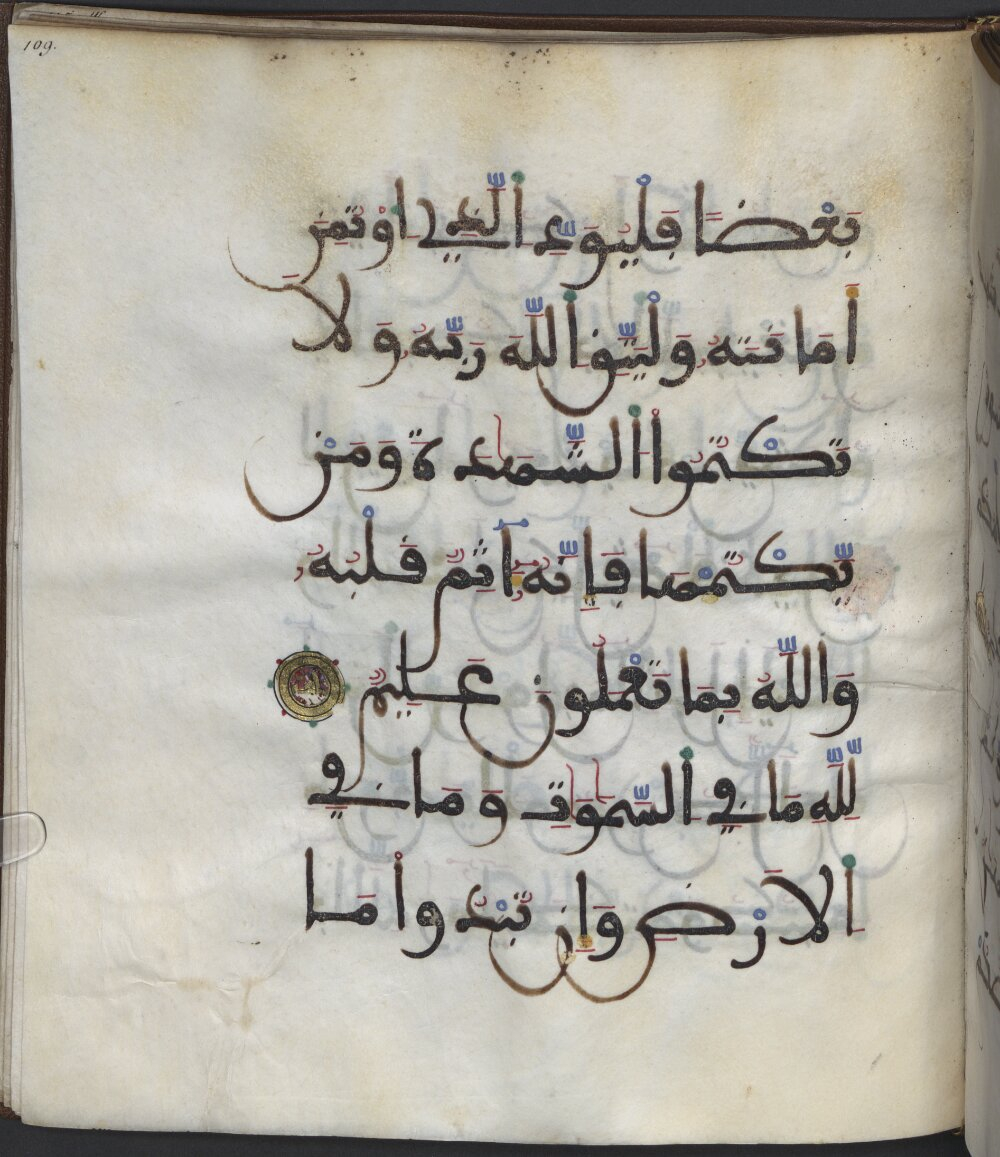 109.
بَعْضًا فَلْيُوَدِّ الَّذِي اوْتُمِنَ
أَمَانَتَهُ وَلْيَتَّقِ اللَّهَ رَبَّهُ وَلَا
تَكْتُمُواْ الشَّهَادَةَ وَمَنْ
يَّكْتُمْهَا فَإِنَّهُ ءَاثِمٌ قَلْبُهُ
وَاللَّهُ بِمَا تَعْمَلُونَ عَلِيمٌ
لِّلَّهِ مَا فِي السَّمَٰوَٰتِ وَمَا فِي
الَارْضِ وَإِن تُبْدُواْ مَا